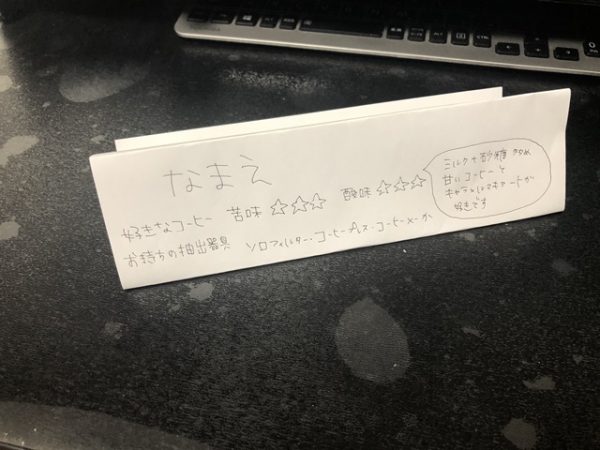 なまえ
好きなコーヒー 苦味 ☆☆☆ 酸味 ☆☆☆
お持ちの抽出器具 ソロフィルター・コーヒープレス・コーヒーメーカ
ミルクや砂糖多め
甘いコーヒーと
キャラメルマキアートが
好きです